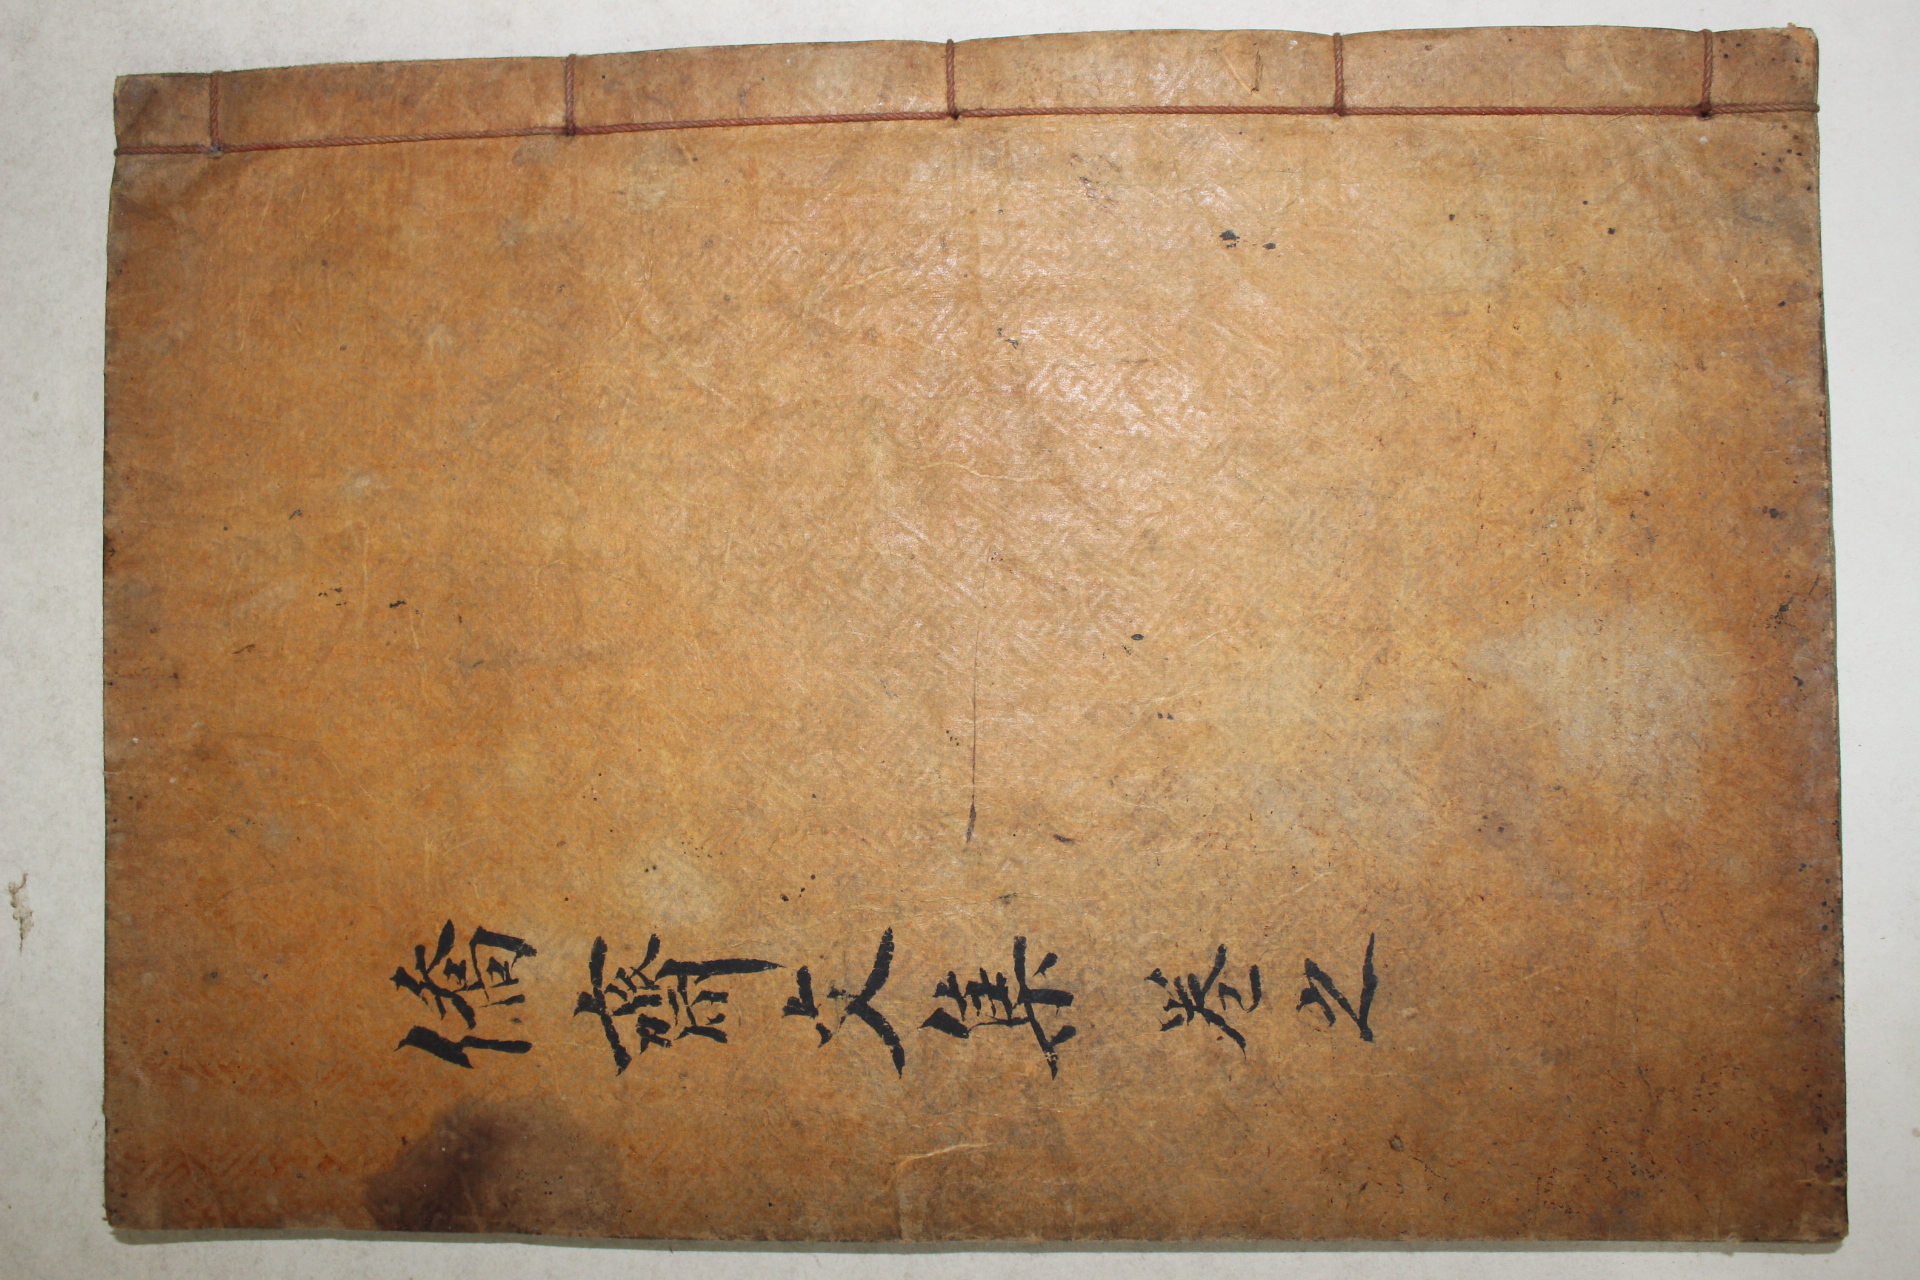 僑齋文集 卷之